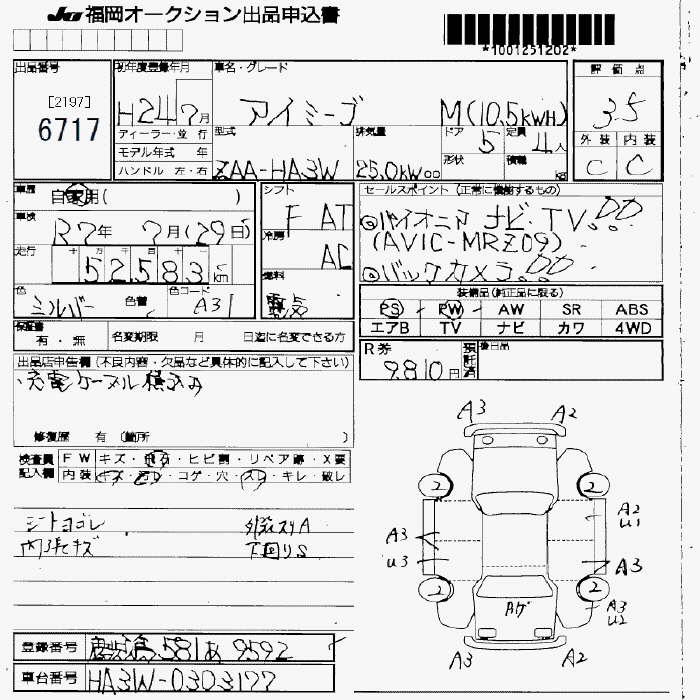 JU 福岡オークション出品申込書
*1001251202*
出品番号
[2197]
6717
初年度登録年月
H24 7月
ディーラー・並行
モデル年式 年
ハンドル 左・右
車名・グレード
アイミーブ M(10.5kWH)
型式
ZAA-HA3W
排気量
25.0kW
ドア
5
形状
定員
4人
積載
kg
評価点
3.5
外装 内装
C C
車歴
自家用( )
車検
37年 7月(29日)
走行
十 万 千 百 十
52583km
色
シルバー
色替
色コード
A31
シフト
F AT
冷房
AC
燃料
電気
セールスポイント (正常に機能するもの)
◎パイオニア ナビ・TV!!
(AVIC-MRZ09)
◎バックカメラ!!
装備品(純正品に限る)
PS PW AW SR ABS
エアB TV ナビ カワ 4WD
保証書
有・無
名変期限 月 日迄に名変できる方
R券
9,810円
預託済
後日品
出品店申告欄(不良内容・欠品など具体的に記入して下さい)
・充電ケーブル積込み
修復歴 有(箇所 )
検査員記入欄
FW キズ・飛石・ヒビ割・リペア跡・X要
内装 キズ・汚レ・コゲ・穴・スレ・キレ・破レ
シートヨゴレ 外装スリA
内張キズ 下回りS
A3 A2
2 2
A2
U1
A3
U3
A3
2 2
A3
U2
Aゲ
A3 A2
登録番号 鹿児島 581 あ 9592
車台番号 HA3W-0303177